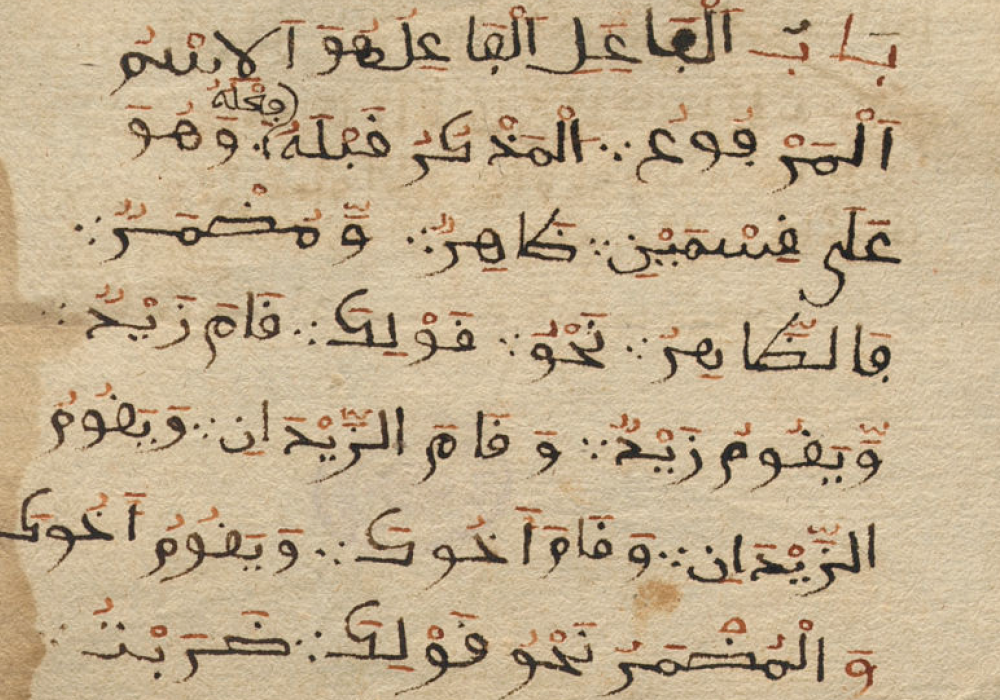 بَابُ الْفَاعِلِ الْفَاعِلُ هُوَ الِاسْمُ
الْمَرْفُوعُ ∴ الْمَذْكُورُ قَبْلَهُ فِعْلُهُ ∴ وَهُوَ
عَلَى قِسْمَيْنِ ∴ ظَاهِرٌ ∴ وَّمُضْمَرٌ ∴
فَالظَّاهِرُ ∴ نَحْوُ ∴ قَوْلِكَ ∴ قَامَ زَيْدٌ ∴
وَّيَقُومُ زَيْدٌ ∴ وَقَامَ الزَّيْدَانِ ∴ وَيَقُومُ
الزَّيْدَانِ ∴ وَقَامَ أَخُوكَ ∴ وَيَقُومُ أَخُوكَ
وَالْمُضْمَرُ نَحْوُ قَوْلِكَ ∴ ضَرَبْتُ ∴